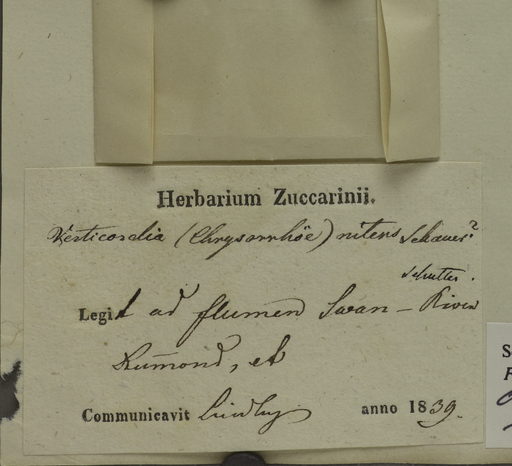 Herbarium Zuccarinii.
Verticordia (Chrysorrhöe) nitens Schauer?
Legit ad flumen Swan-River
Drum̄ond, et
Communicavit Lindley anno 1839.